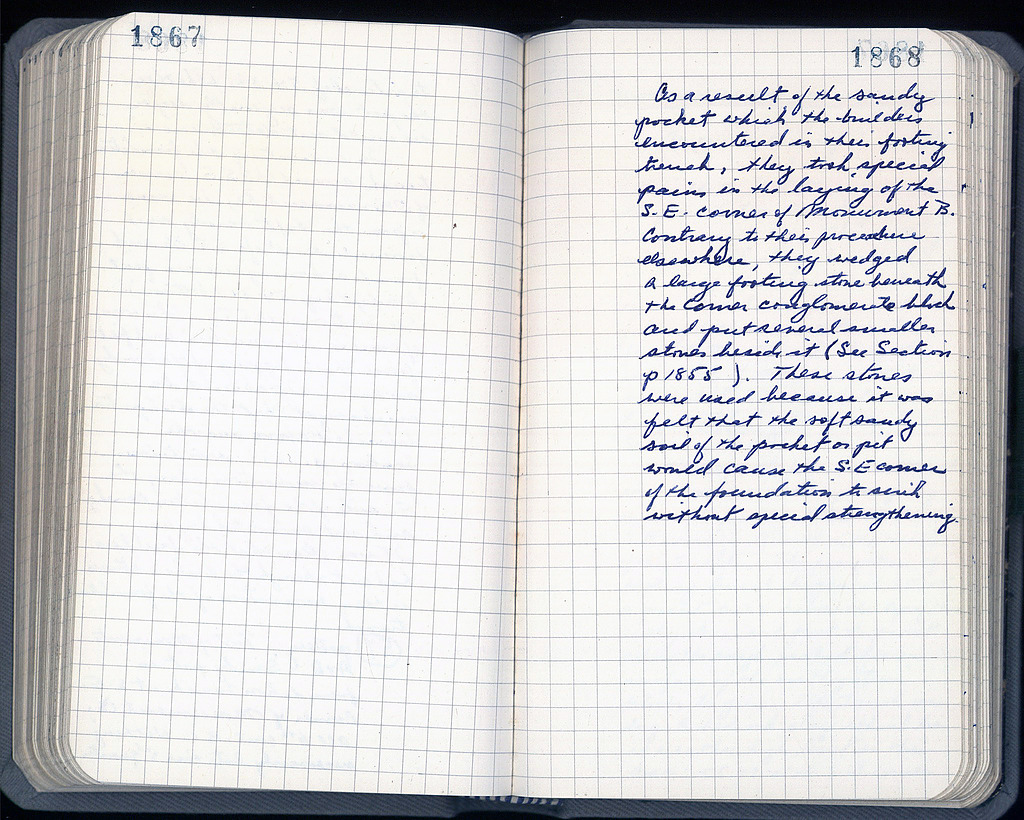 1867
1868
As a result of the sandy
pocket which the builders
encountered in their footing
trench, they took special
pains in the laying of the
S.E. corner of Monument B.
Contrary to their procedure
elsewhere, they wedged
a large footing stone beneath
the corner conglomerate block
and put several smaller
stones beside it (See Section
p 1855 ). These stones
were used because it was
felt that the soft sandy
soil of the pocket or pit
would cause the S.E corner
of the foundation to sink
without special strengthening.